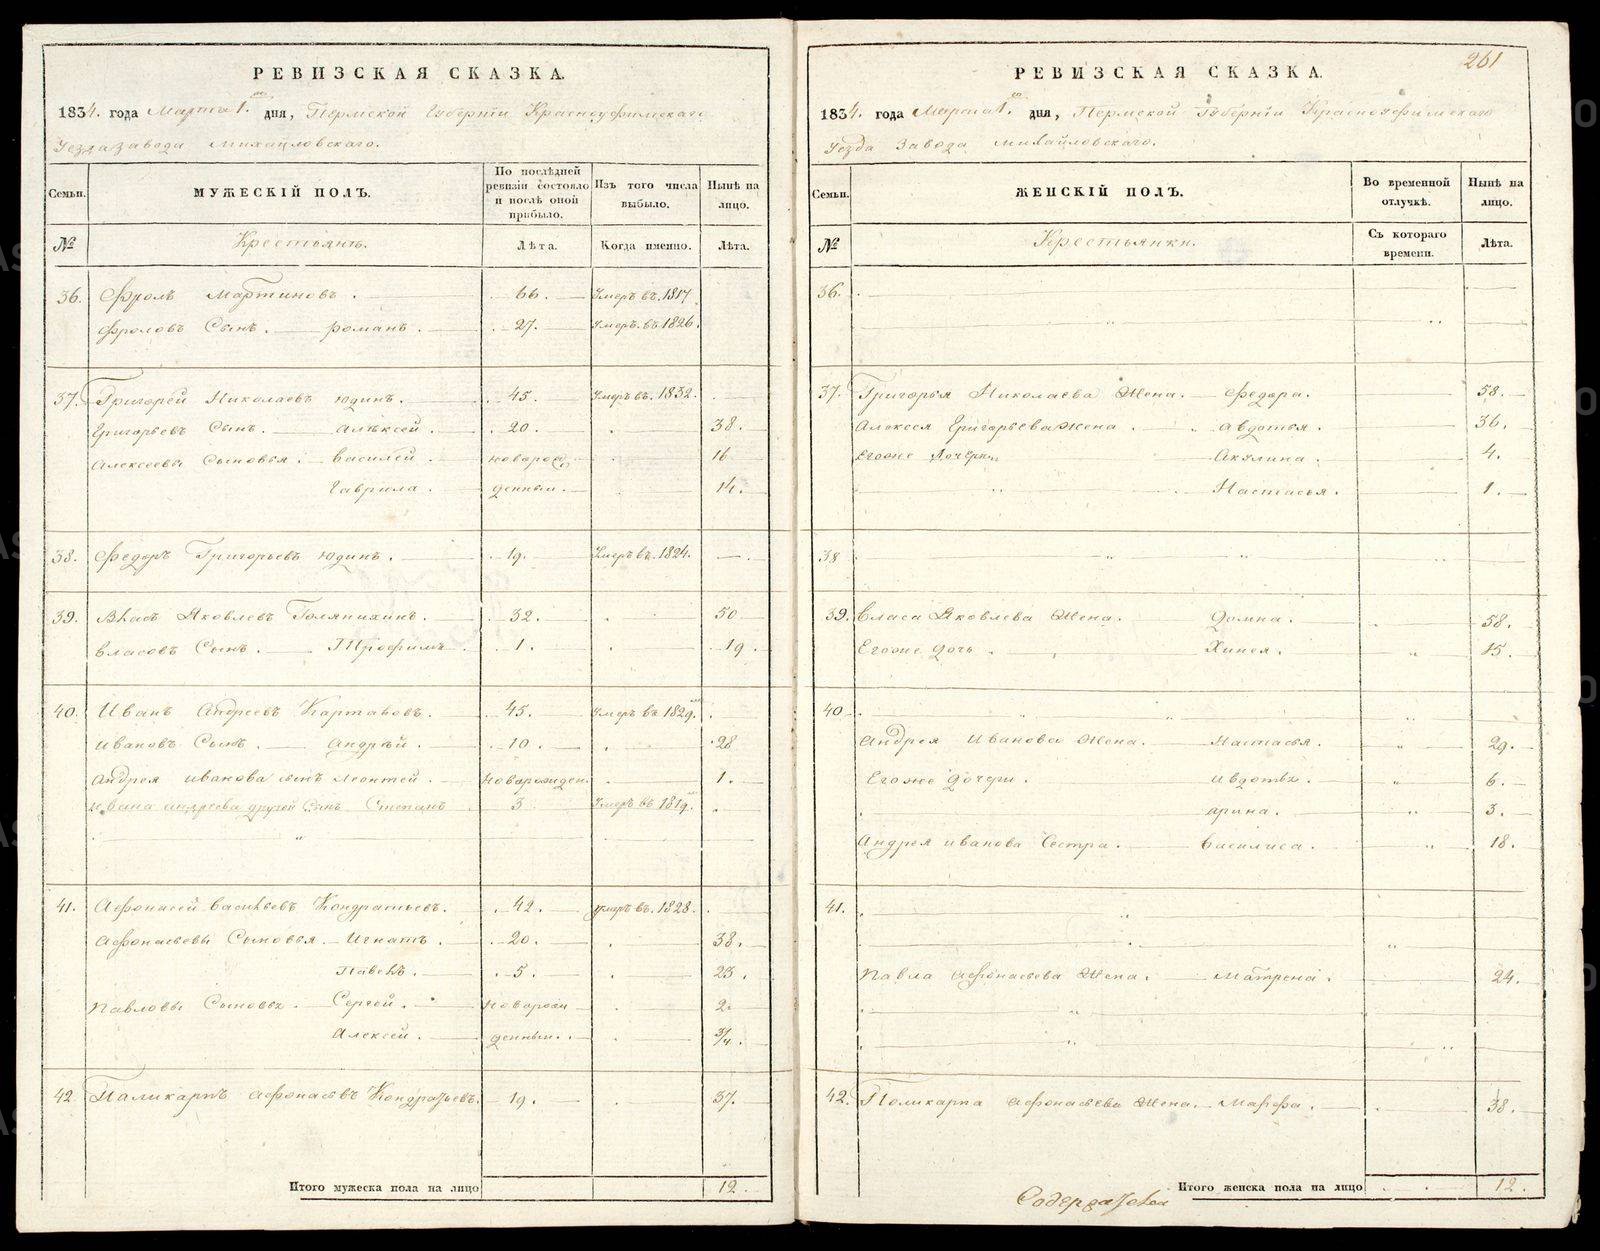 РЕВИЗСКАЯ СКАЗКА.
1834. года Марта 1. го дня, Пермской Губерніи Красноуфимскаго
Уезда завода Михайловскаго.
Семьи.
МУЖЕСКІЙ ПОЛЪ.
По послѣдней ревизіи состояло и послѣ оной прибыло.
Изъ того числа выбыло.
Нынѣ на лицо.
№
Крестьянъ.
Лѣта.
Когда именно.
Лѣта.
36. Фролъ Мартиновъ. 66. Умеръ въ. 1817
Фроловъ Сынъ. Романъ. 27. Умеръ. въ 1826.
37. Григорей Николаевъ Юдинъ. 45. Умеръ въ. 1832.
Григорьевъ Сынъ. Алѣксей. 20. 38.
Алексеевы Сыновья. Василей. новорож 16
Гаврила. денныи. 14.
38. Федоръ Григорьевъ Юдинъ. 19. Умеръ въ. 1824.
39. Власъ Яковлевъ Голяпихинъ. 32. 50
Власовъ Сынъ. Трофимъ. 1. 19.
40. Иванъ Андреевъ Карташовъ. 45. Умеръ въ 1829.
Ивановъ Сынъ. Андрѣй. 10. 28
Андрея Иванова сынъ Леонтей. Новорожден. 1.
Ивана андреева другой Сынъ Степанъ 3 Умеръ въ 1819.
41. Афонасей Васильевъ Кондратьевъ. 42. умеръ въ. 1828.
Афонасьевы Сыновья. Игнатъ. 20. 38.
Павелъ. 5. 23.
Павловы Сыновья. Сергей. Новорож 2.
Алексей. денныи. 3/4.
42 Паликарпъ Афонасьевъ Кондратьевъ. 19. 37.
Итого мужеска пола на лицо 12.
261
РЕВИЗСКАЯ СКАЗКА.
1834. года Марта 1. го дня, Пермской Губерніи Красноуфимскаго
Уезда Завода Михайловскаго.
Семьи.
ЖЕНСКІЙ ПОЛЪ.
Во временной отлучкѣ.
Нынѣ на лицо.
№
Крестьянки.
Съ котораго времени.
Лѣта.
36.
37. Григорья Николаева Жена. Федора. 58.
Алексея Григорьева жена. Авдотья. 36.
Егоже Дочери Акулина. 4.
Настасья. 1.
38
39. Власа Яковлева Жена. Домна. 58.
Егоже Дочь. 15.
40
Андрея Иванова Жена. Настасья. 29.
Егоже Дочери. Авдотья. 6.
Арина. 3.
Андрея Иванова Сестра. Василиса. 18.
41.
Павла Афонасьева Жена. Матрена. 24.
42. Поликарпа Афонасьева Жена. Марфа. 38.
Итого женска пола на лицо 12.